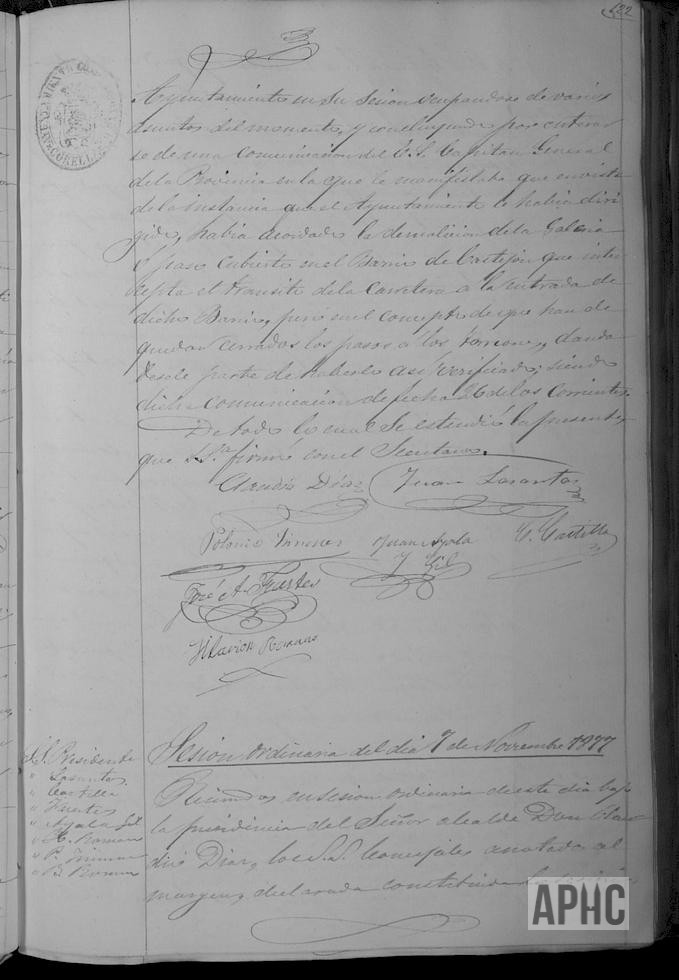 122
Ayuntamiento en su sesion ocupandose de varios
asuntos del momento, y concluyendo por enterar
se de una comunicacion del E. S. Capitan General
de la Provincia en la que le manifestaba que en vista
de la instancia que el Ayuntamiento le habia diri
gido, habia acordado la demolicion de la Galeria
o paso cubierto en el Barrio de Castejon que inter
cepta el transito de la Carretera a la entrada de
dicho Barrio, pero en el concepto de que han de
quedar cerrados los pasos a los torreones, dando
desele parte de haberlo asi verificado; siendo
dicha comunicacion de fecha 26 de los corrientes.
De todo lo cual se estendió la presente,
que S. Sª firmó con el Secretario.
Claudio Diaz Juan Lasantas
Polonio Jimenez Juan Ayala C. Castilla
y Gil
José A. Fuertes
Hilarion Romano
Sesion ordinaria del dia 7 de Noviembre 1877
S. Presidente
" Lasantas
" Castilla
" Fuertes
" Ayala Gil
" H. Roman
" P. Jimenez
" B. Roman
Reunidos en sesion ordinaria de este dia bajo
la presidencia del Señor alcalde Don Clau
dio Diaz, los S.S. Concejales anotados al
margen, declarada constituida la
APHC